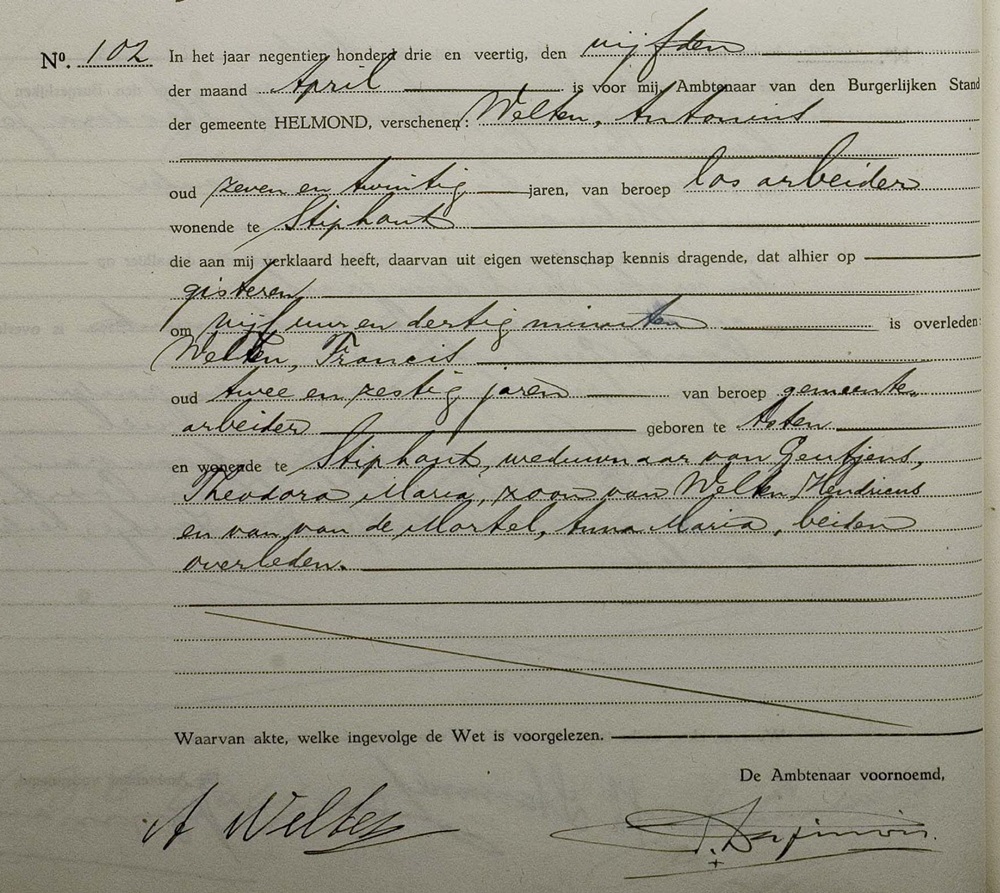 Nº. 102 In het jaar negentien honderd drie en veertig, den vijfden
der maand April is voor mij, Ambtenaar van den Burgerlijken Stand
der gemeente HELMOND, verschenen: Welten, Antonius
oud zeven en twintig jaren, van beroep los arbeider
wonende te Stiphout
die aan mij verklaard heeft, daarvan uit eigen wetenschap kennis dragende, dat alhier op
gisteren
om vijf uur en dertig minuten is overleden:
Welten, Francis
oud twee en zestig jaren van beroep gemeente-
arbeider geboren te Asten
en wonende te Stiphout, weduwnaar van Geutjens,
Theodora Maria, zoon van Welten, Hendricus
en van van de Mortel, Anna Maria, beiden
overleden.
Waarvan akte, welke ingevolge de Wet is voorgelezen.
De Ambtenaar voornoemd,
A Welten